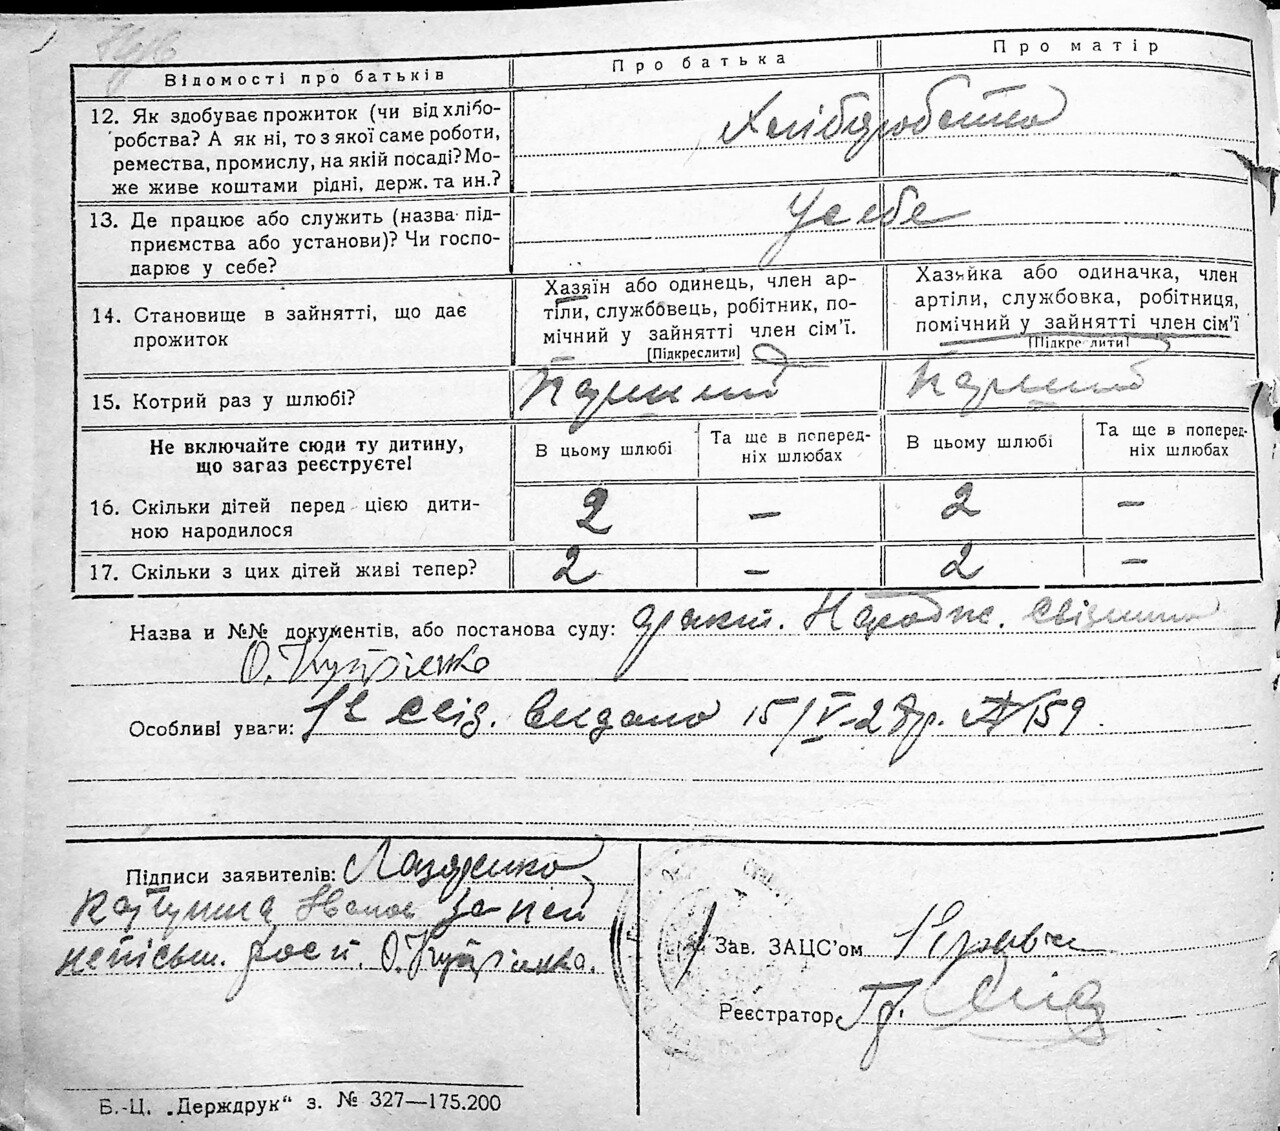 Відомості про батьків
Про батька
Про матір
12. Як здобуває прожиток (чи від хлібо-
робства? А як ні, то з якої саме роботи,
ремества, промислу, на якій посаді? Мо-
же живе коштами рідні, держ. та ин.?
Хліборобство
13. Де працює або служить (назва під-
приємства або установи)? Чи госпо-
дарює у себе?
У себе
14. Становище в зайнятті, що дає
прожиток
Хазяїн або одинець, член ар-
тіли, службовець, робітник, по-
мічний у зайнятті член сім'ї.
[Підкреслити]
Хазяйка або одиначка, член
артіли, службовка, робітниця,
помічний у зайнятті член сім'ї
[Підкреслити]
15. Котрий раз у шлюбі?
Не включайте сюди ту дитину,
що загаз реєструєте!
В цьому шлюбі
Та ще в поперед-
ніх шлюбах
В цьому шлюбі
Та ще в поперед-
ніх шлюбах
16. Скільки дітей перед цією дити-
ною народилося
2 — 2 —
17. Скільки з цих дітей живі тепер?
2 — 2 —
Назва и №№ документів, або постанова суду:
Особливі уваги: видано 15/V-28р. № 159.
Підписи заявителів: Лазаренко
за неї
О.
Зав. ЗАЦС'ом
Реєстратор
Б.-Ц. „Держдрук" з. № 327—175.200